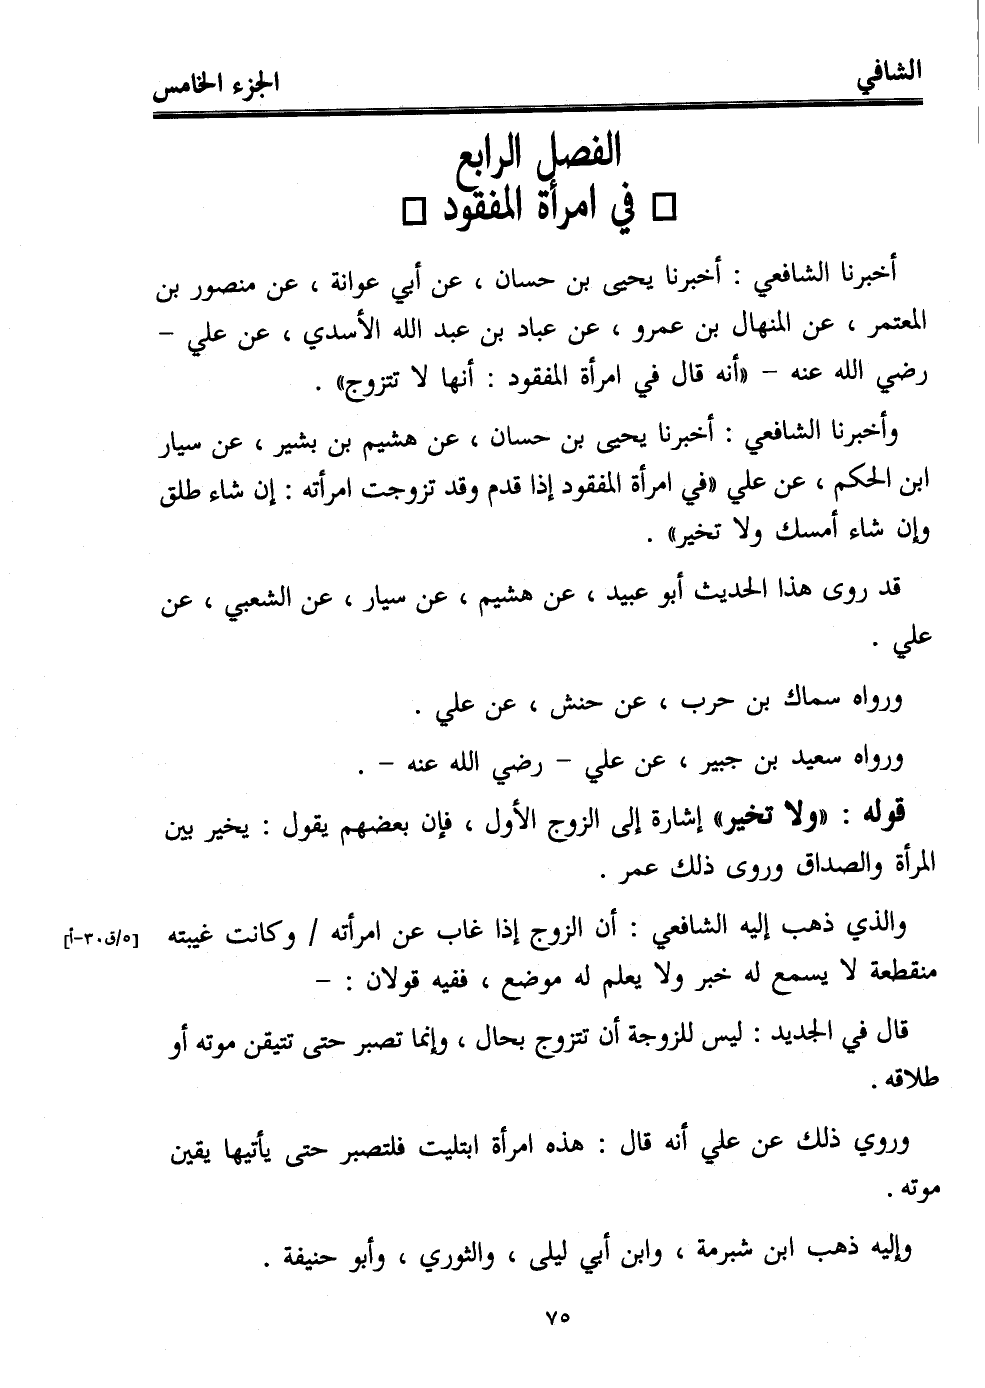 الشافي
الجزء الخامس
الفصل الرابع
□ في امرأة المفقود □
أخبرنا الشافعي : أخبرنا يحيى بن حسان ، عن أبي عوانة ، عن منصور بن
المعتمر ، عن المنهال بن عمرو ، عن عباد بن عبد الله الأسدي ، عن علي –
رضي الله عنه – «أنه قال في امرأة المفقود : أنها لا تتزوج» .
وأخبرنا الشافعي : أخبرنا يحيى بن حسان ، عن هشيم بن بشير ، عن سيار
ابن الحكم ، عن علي «في امرأة المفقود إذا قدم وقد تزوجت امرأته : إن شاء طلق
وإن شاء أمسك ولا تخير» .
قد روى هذا الحديث أبو عبيد ، عن هشيم ، عن سيار ، عن الشعبي ، عن
علي .
ورواه سماك بن حرب ، عن حنش ، عن علي .
ورواه سعيد بن جبير ، عن علي – رضي الله عنه – .
قوله : «ولا تخير» إشارة إلى الزوج الأول ، فإن بعضهم يقول : يخير بين
المرأة والصداق وروى ذلك عمر .
والذي ذهب إليه الشافعي : أن الزوج إذا غاب عن امرأته / وكانت غيبته [٥/ق٣٠-أ]
منقطعة لا يسمع له خبر ولا يعلم له موضع ، ففيه قولان : –
قال في الجديد : ليس للزوجة أن تتزوج بحال ، وإنما تصبر حتى تتيقن موته أو
طلاقه .
وروي ذلك عن علي أنه قال : هذه امرأة ابتليت فلتصبر حتى يأتيها يقين
موته .
وإليه ذهب ابن شبرمة ، وابن أبي ليلى ، والثوري ، وأبو حنيفة .
٧٥